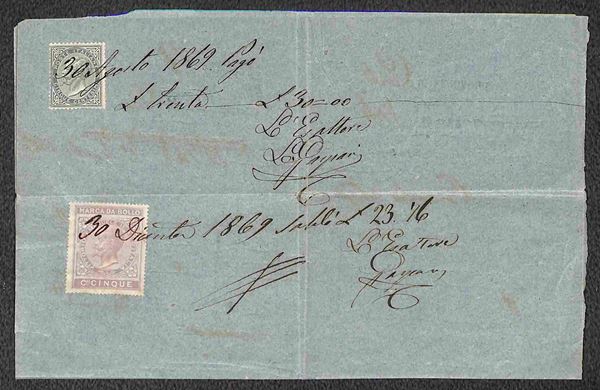 30 Agosto 1869 Pagò
£ trenta £ 30=00
L'Esattore
Gaspari
MARCA DA BOLLO
30 Dicembre 1869 Saldò £ 23.16
L'Esattore
Gaspari
C. CINQUE